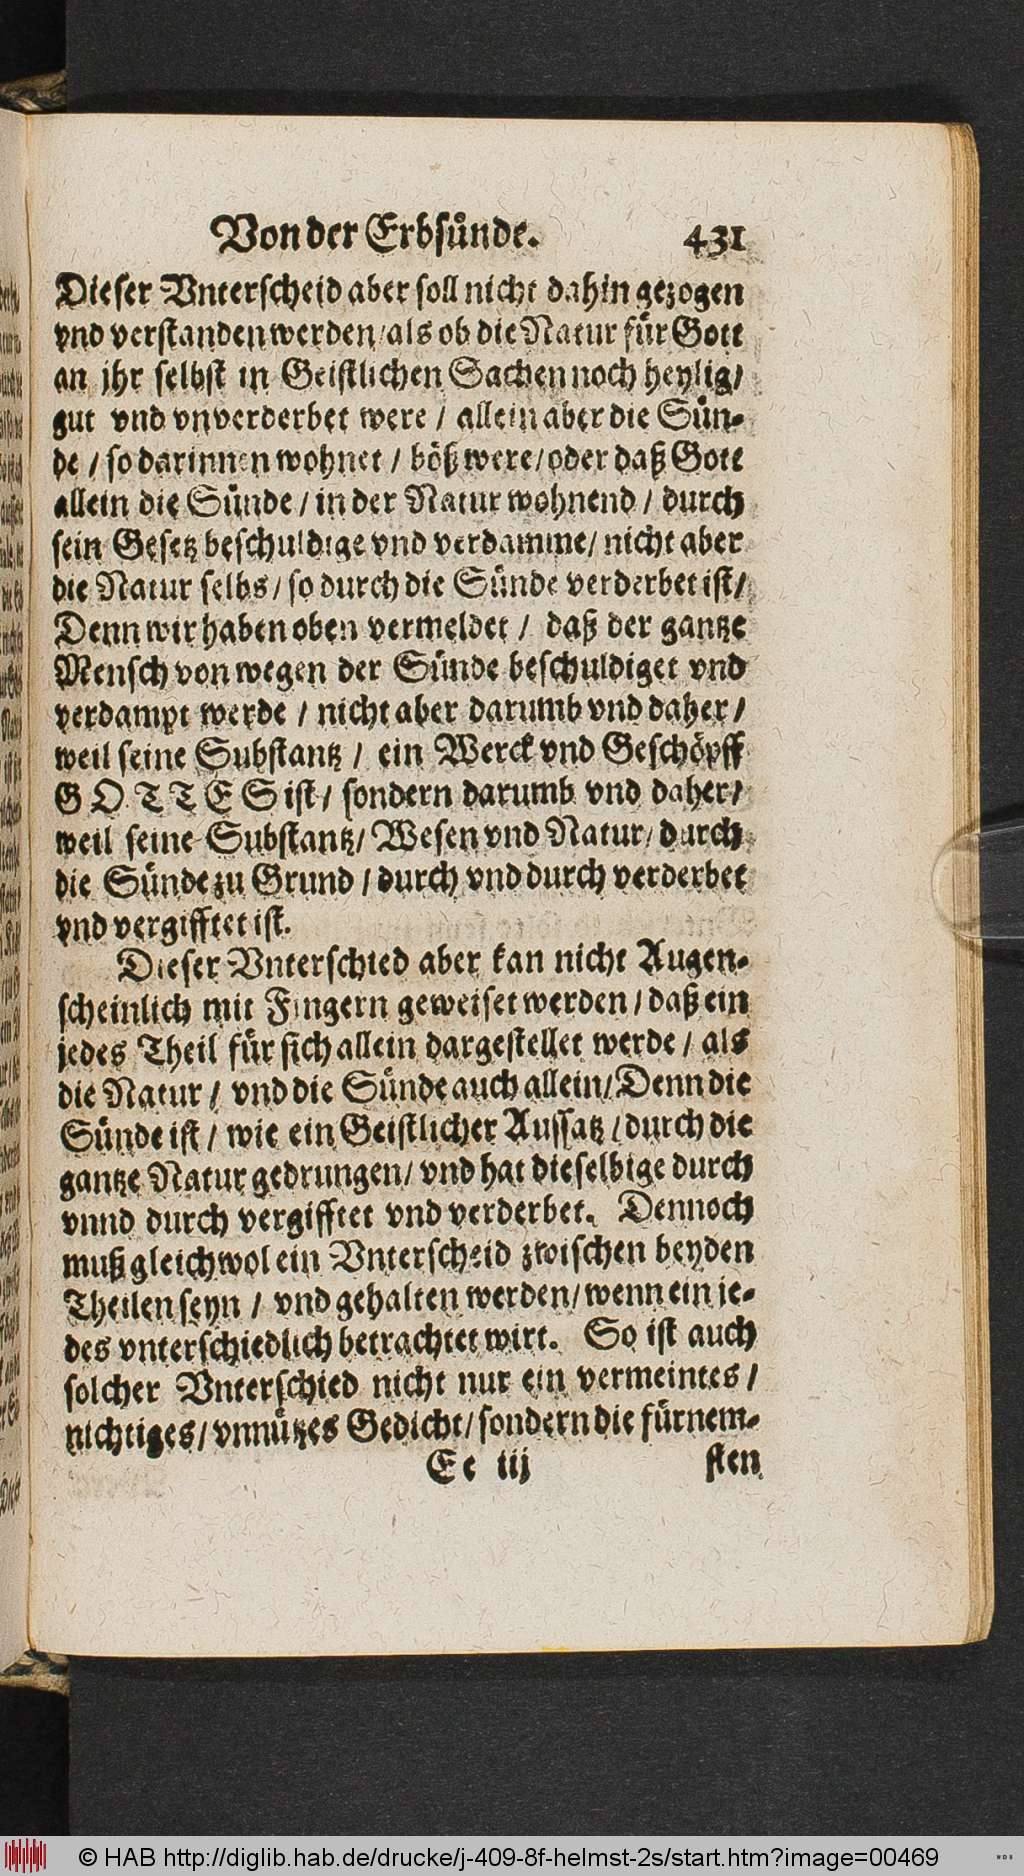 Von der Erbsünde. 431
Dieser Vnterscheid aber soll nicht dahin gezogen
vnd verstanden werden / als ob die Natur für Gott
an jhr selbst in Geistlichen Sachen noch heylig /
gut vnd vnverderbet were / allein aber die Sün-
de / so darinnen wohnet / böß were / oder daß Gott
allein die Sünde / in der Natur wohnend / durch
sein Gesetz beschuldige vnd verdamme / nicht aber
die Natur selbs / so durch die Sünde verderbet ist /
Denn wir haben oben vermeldet / daß der gantze
Mensch von wegen der Sünde beschuldiget vnd
verdampt werde / nicht aber darumb vnd daher /
weil seine Substantz / ein Werck vnd Geschöpff
GOTTES ist / sondern darumb vnd daher /
weil seine Substantz / Wesen vnd Natur / durch
die Sünde zu Grund / durch vnd durch verderbet
vnd vergifftet ist.
Dieser Vnterschied aber kan nicht Augen-
scheinlich mit Fingern geweiset werden / daß ein
jedes Theil für sich allein dargestellet werde / als
die Natur / vnd die Sünde auch allein / Denn die
Sünde ist / wie ein Geistlicher Aussatz / durch die
gantze Natur gedrungen / vnd hat dieselbige durch
vnnd durch vergifftet vnd verderbet. Dennoch
muß gleichwol ein Vnterscheid zwischen beyden
Theilen seyn / vnd gehalten werden / wenn ein je-
des vnterschiedlich betrachtet wirt. So ist auch
solcher Vnterschied nicht nur ein vermeintes /
nichtiges / vnnützes Gedicht / sondern die fürnem-
Ee iij sten
© HAB http://diglib.hab.de/drucke/j-409-8f-helmst-2s/start.htm?image=00469